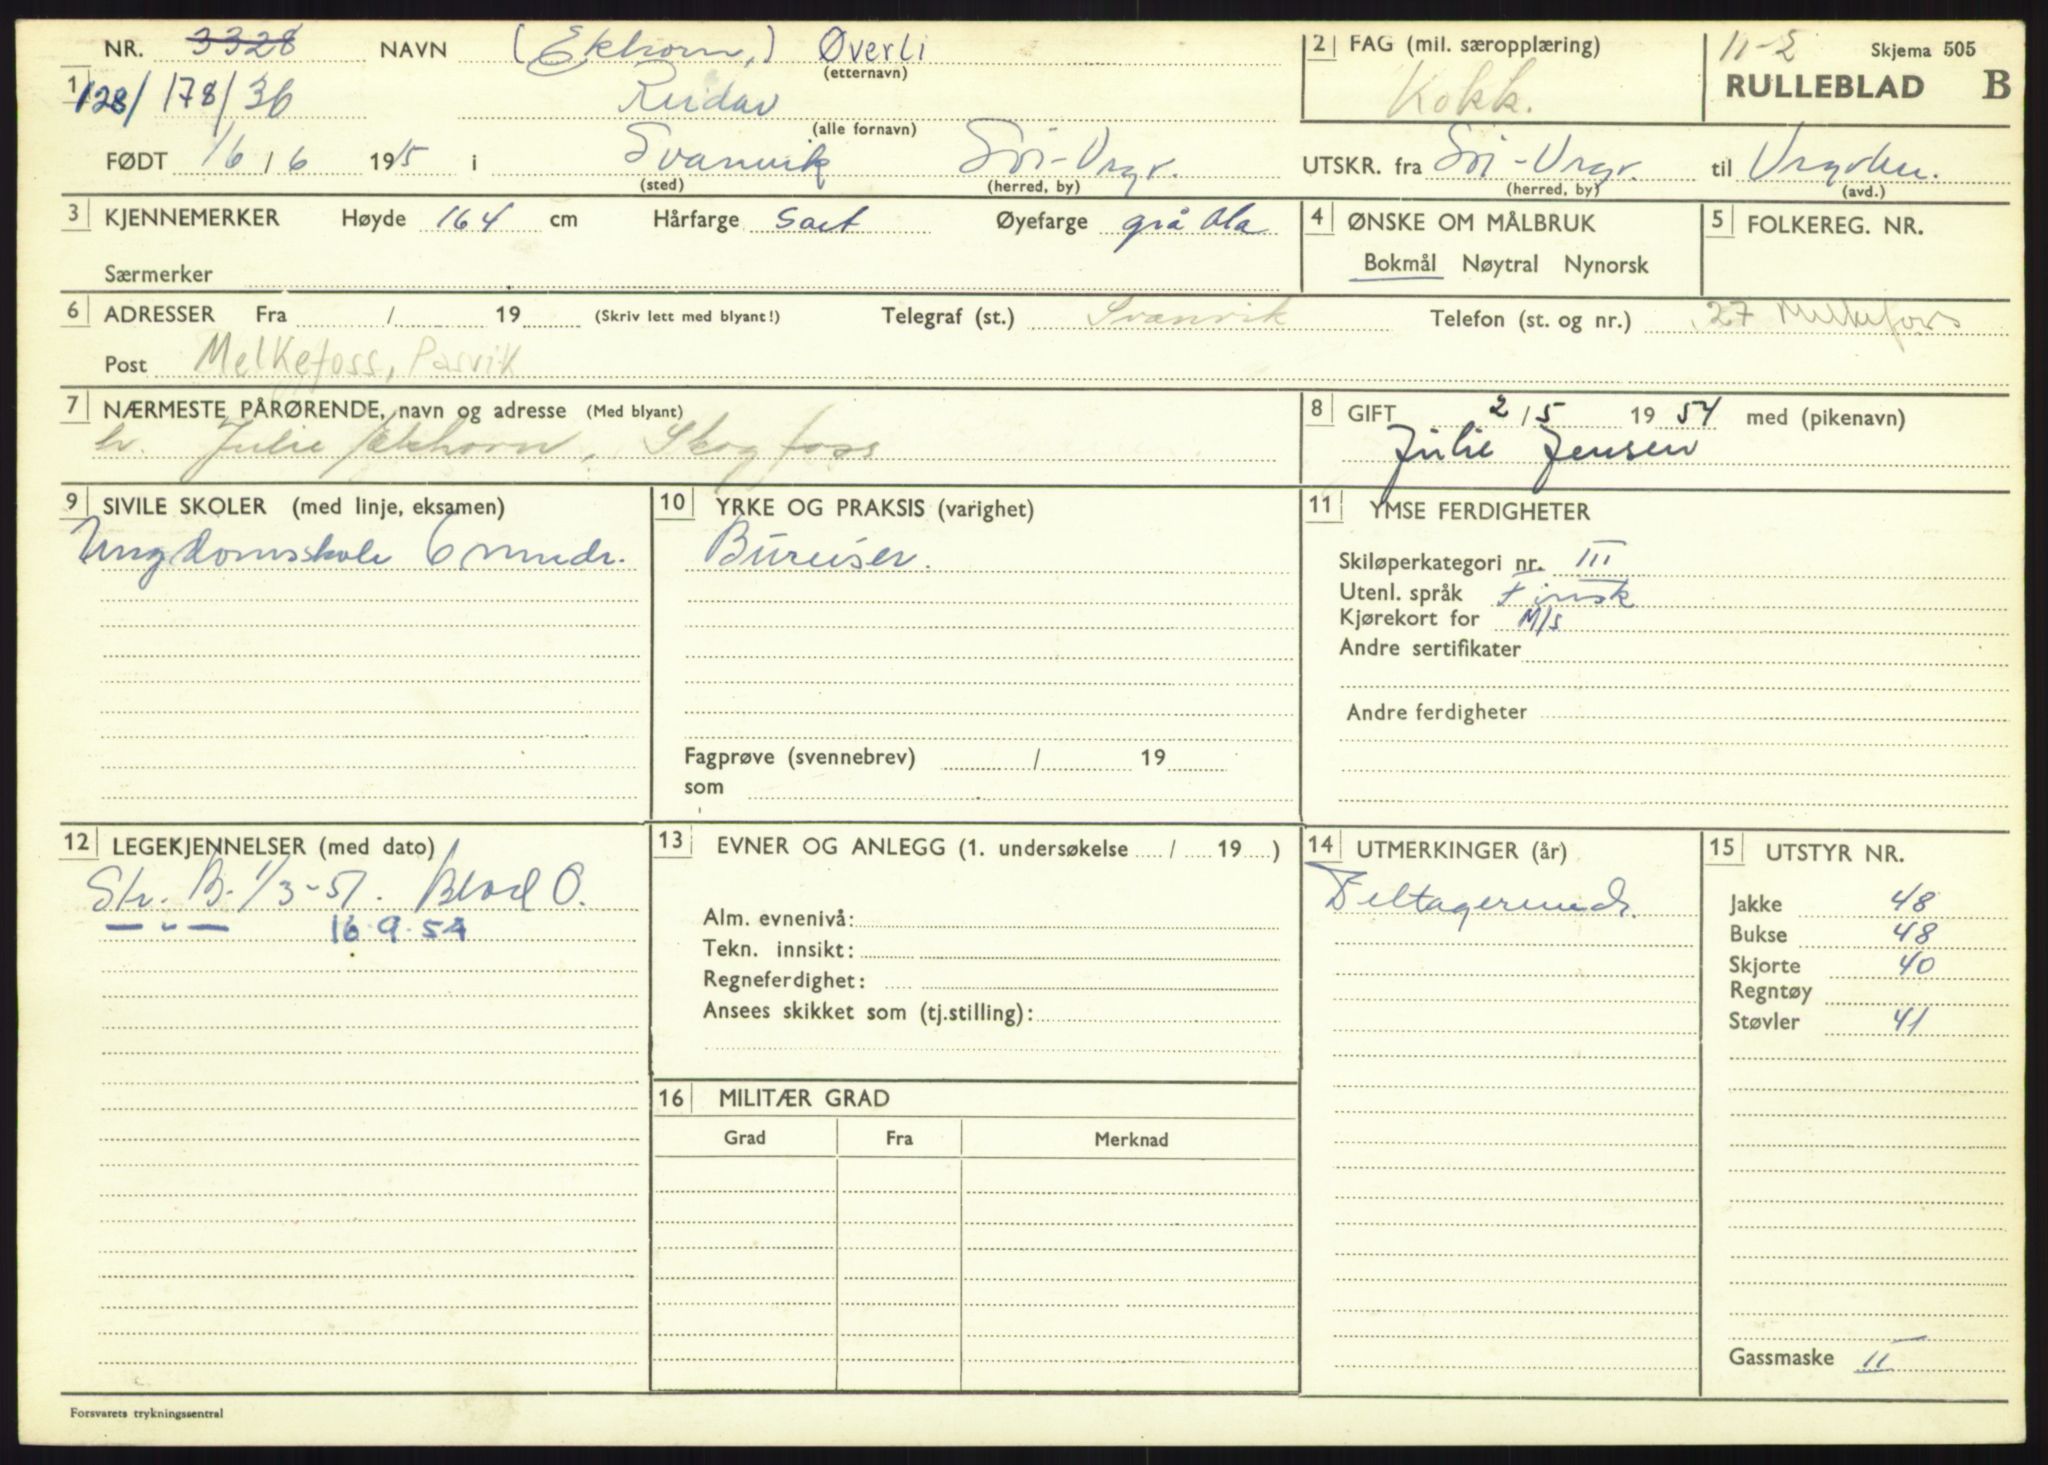 NR. 3328 NAVN (Ekhorn,) Øverli 2 FAG (mil. særopplæring) 11-2 Skjema 505
(etternavn)
1 128/178/36 Reidar Kokk. RULLEBLAD B
(alle fornavn)
FØDT 16/6 1915 i Svanvik Sør-Vrgr. UTSKR. fra Sør-Vrgr. til
(sted) (herred, by) (herred, by) (avd.)
3 KJENNEMERKER Høyde 164 cm Hårfarge sort Øyefarge grå bla 4 ØNSKE OM MÅLBRUK 5 FOLKEREG. NR.
Særmerker Bokmål Nøytral Nynorsk
6 ADRESSER Fra / 19 (Skriv lett med blyant!) Telegraf (st.) Svanvik Telefon (st. og nr.) 27 Melkefoss
Post Melkefoss, Pasvik
7 NÆRMESTE PÅRØRENDE, navn og adresse (Med blyant) 8 GIFT 2/5 1954 med (pikenavn)
h. Julie Ekhorn, Skogfoss Julie Jensen
9 SIVILE SKOLER (med linje, eksamen) 10 YRKE OG PRAKSIS (varighet) 11 YMSE FERDIGHETER
Ungdomsskole 6 mndr. Bureiser. Skiløperkategori nr. III
Utenl. språk Finsk
Kjørekort for M/s
Andre sertifikater
Andre ferdigheter
Fagprøve (svennebrev) / 19
som
12 LEGEKJENNELSER (med dato) 13 EVNER OG ANLEGG (1. undersøkelse / 19 ) 14 UTMERKINGER (år) 15 UTSTYR NR.
Str. B. 1/3-51. Blod O. Deltagermedr. Jakke 48
— " — 16.9.54 Alm. evnenivå: Bukse 48
Tekn. innsikt: Skjorte 40
Regneferdighet: Regntøy
Ansees skikket som (tj.stilling): Støvler 41
16 MILITÆR GRAD
Grad Fra Merknad
Gassmaske II
Forsvarets trykningssentral